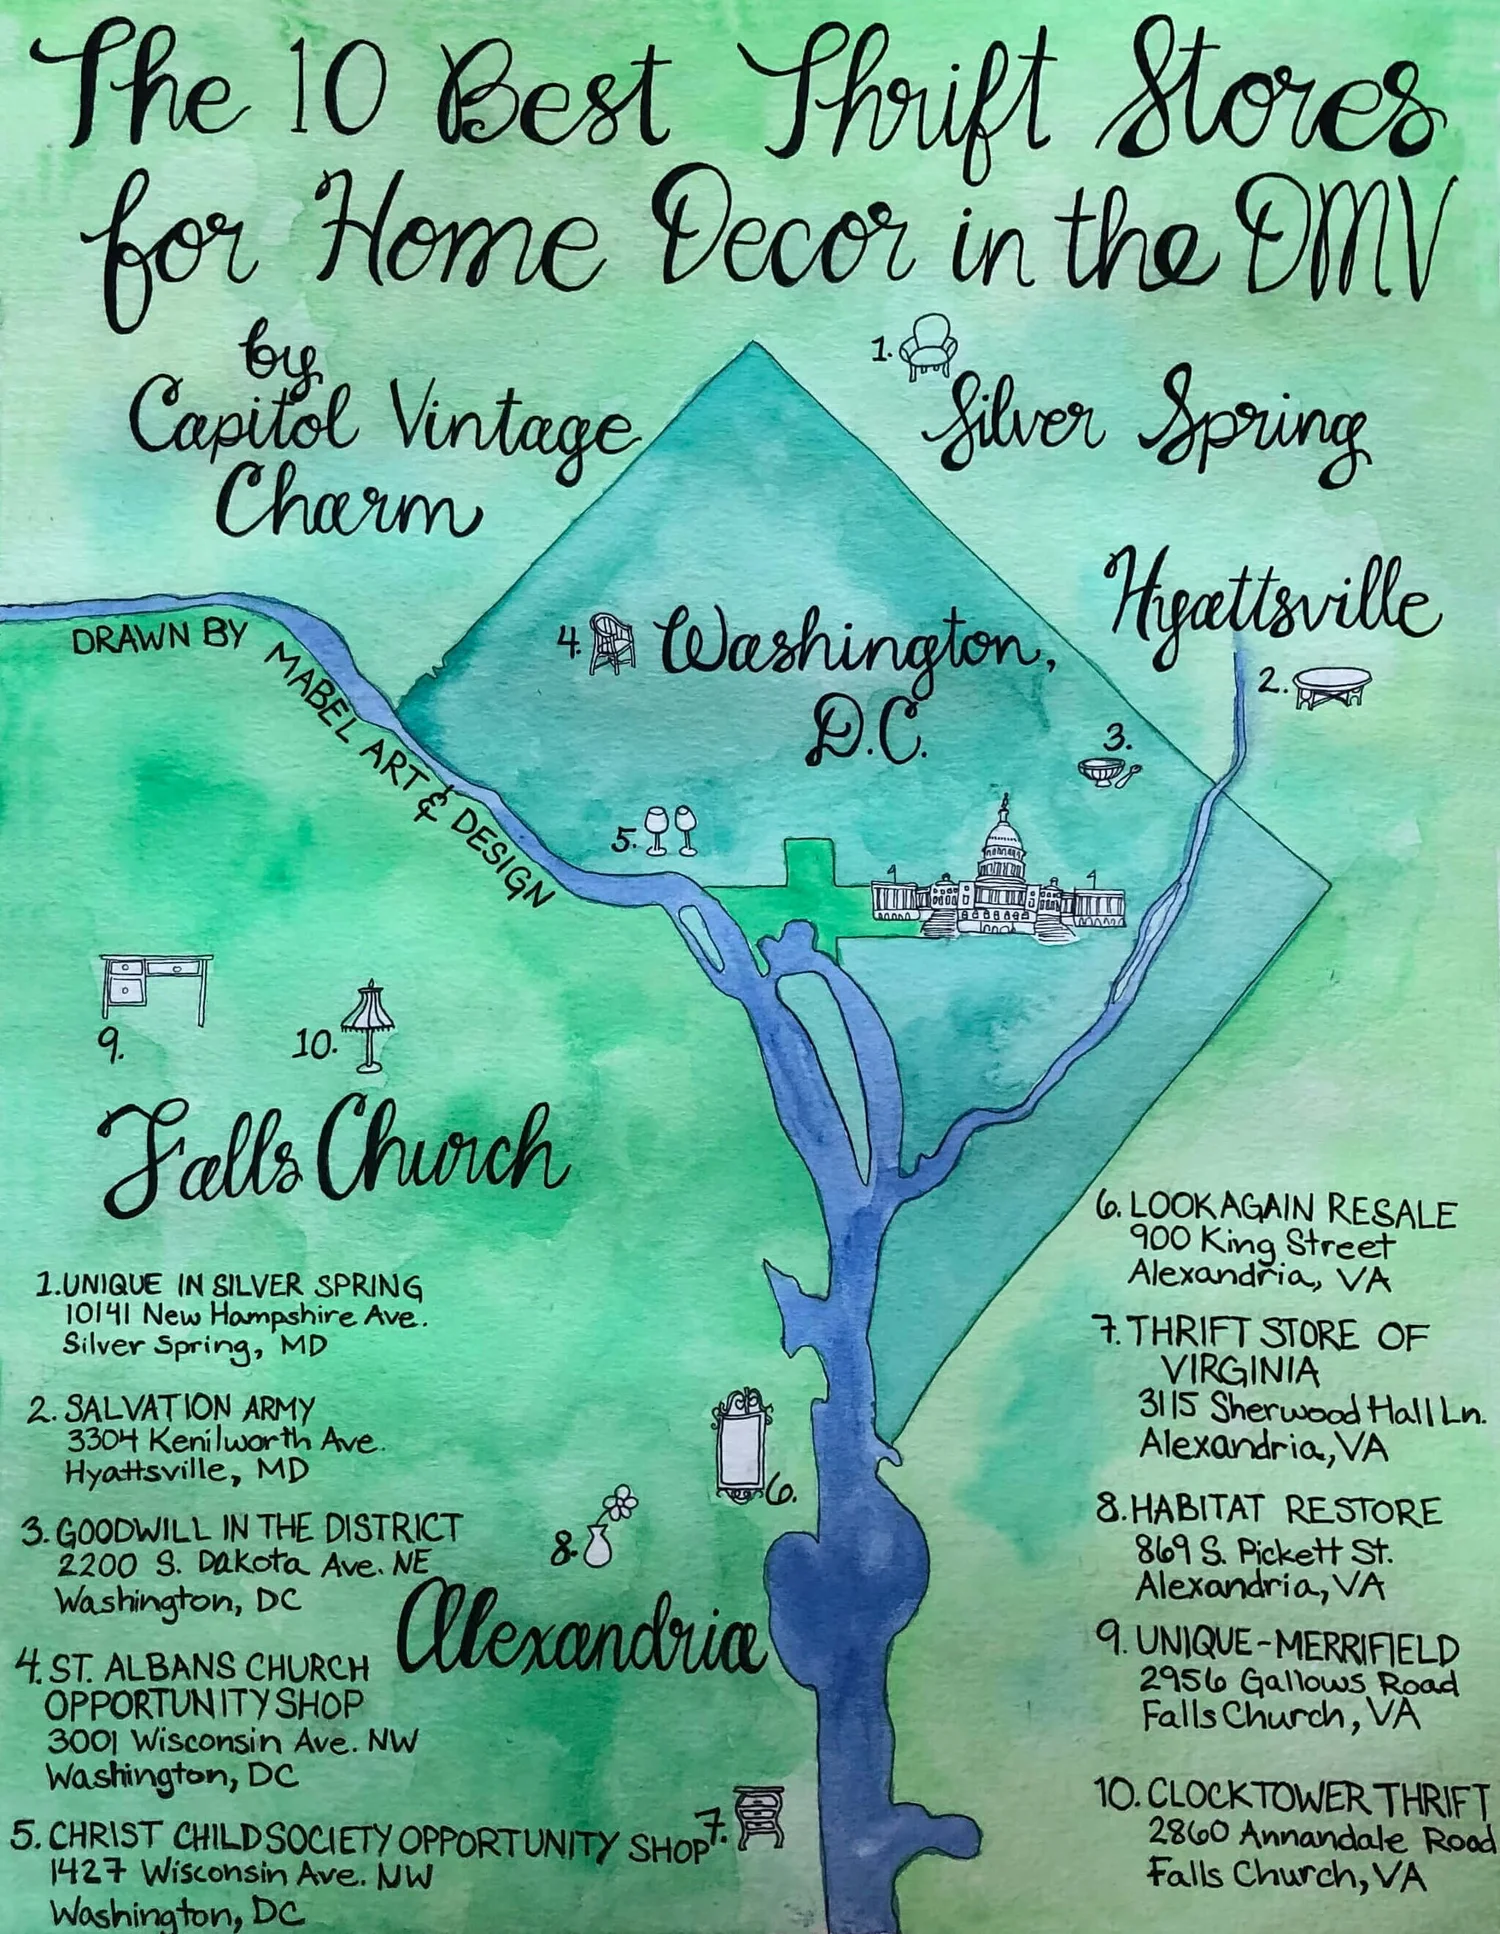 The 10 Best Thrift Stores
for Home Decor in the DMV
by
Capitol Vintage
Charm
1.
Silver Spring
Hyattsville
2.
DRAWN BY MABEL ART & DESIGN
4.
Washington,
D.C.
3.
5.
9.
10.
Falls Church
1. UNIQUE IN SILVER SPRING
10141 New Hampshire Ave.
Silver Spring, MD
2. SALVATION ARMY
3304 Kenilworth Ave.
Hyattsville, MD
3. GOODWILL IN THE DISTRICT
2200 S. Dakota Ave. NE
Washington, DC
4. ST. ALBANS CHURCH
OPPORTUNITY SHOP
3001 Wisconsin Ave. NW
Washington, DC
5. CHRIST CHILD SOCIETY OPPORTUNITY SHOP
1427 Wisconsin Ave. NW
Washington, DC
6.
8.
Alexandria
7.
6. LOOK AGAIN RESALE
900 King Street
Alexandria, VA
7. THRIFT STORE OF
VIRGINIA
3115 Sherwood Hall Ln.
Alexandria, VA
8. HABITAT RESTORE
869 S. Pickett St.
Alexandria, VA
9. UNIQUE-MERRIFIELD
2956 Gallows Road
Falls Church, VA
10. CLOCKTOWER THRIFT
2860 Annandale Road
Falls Church, VA